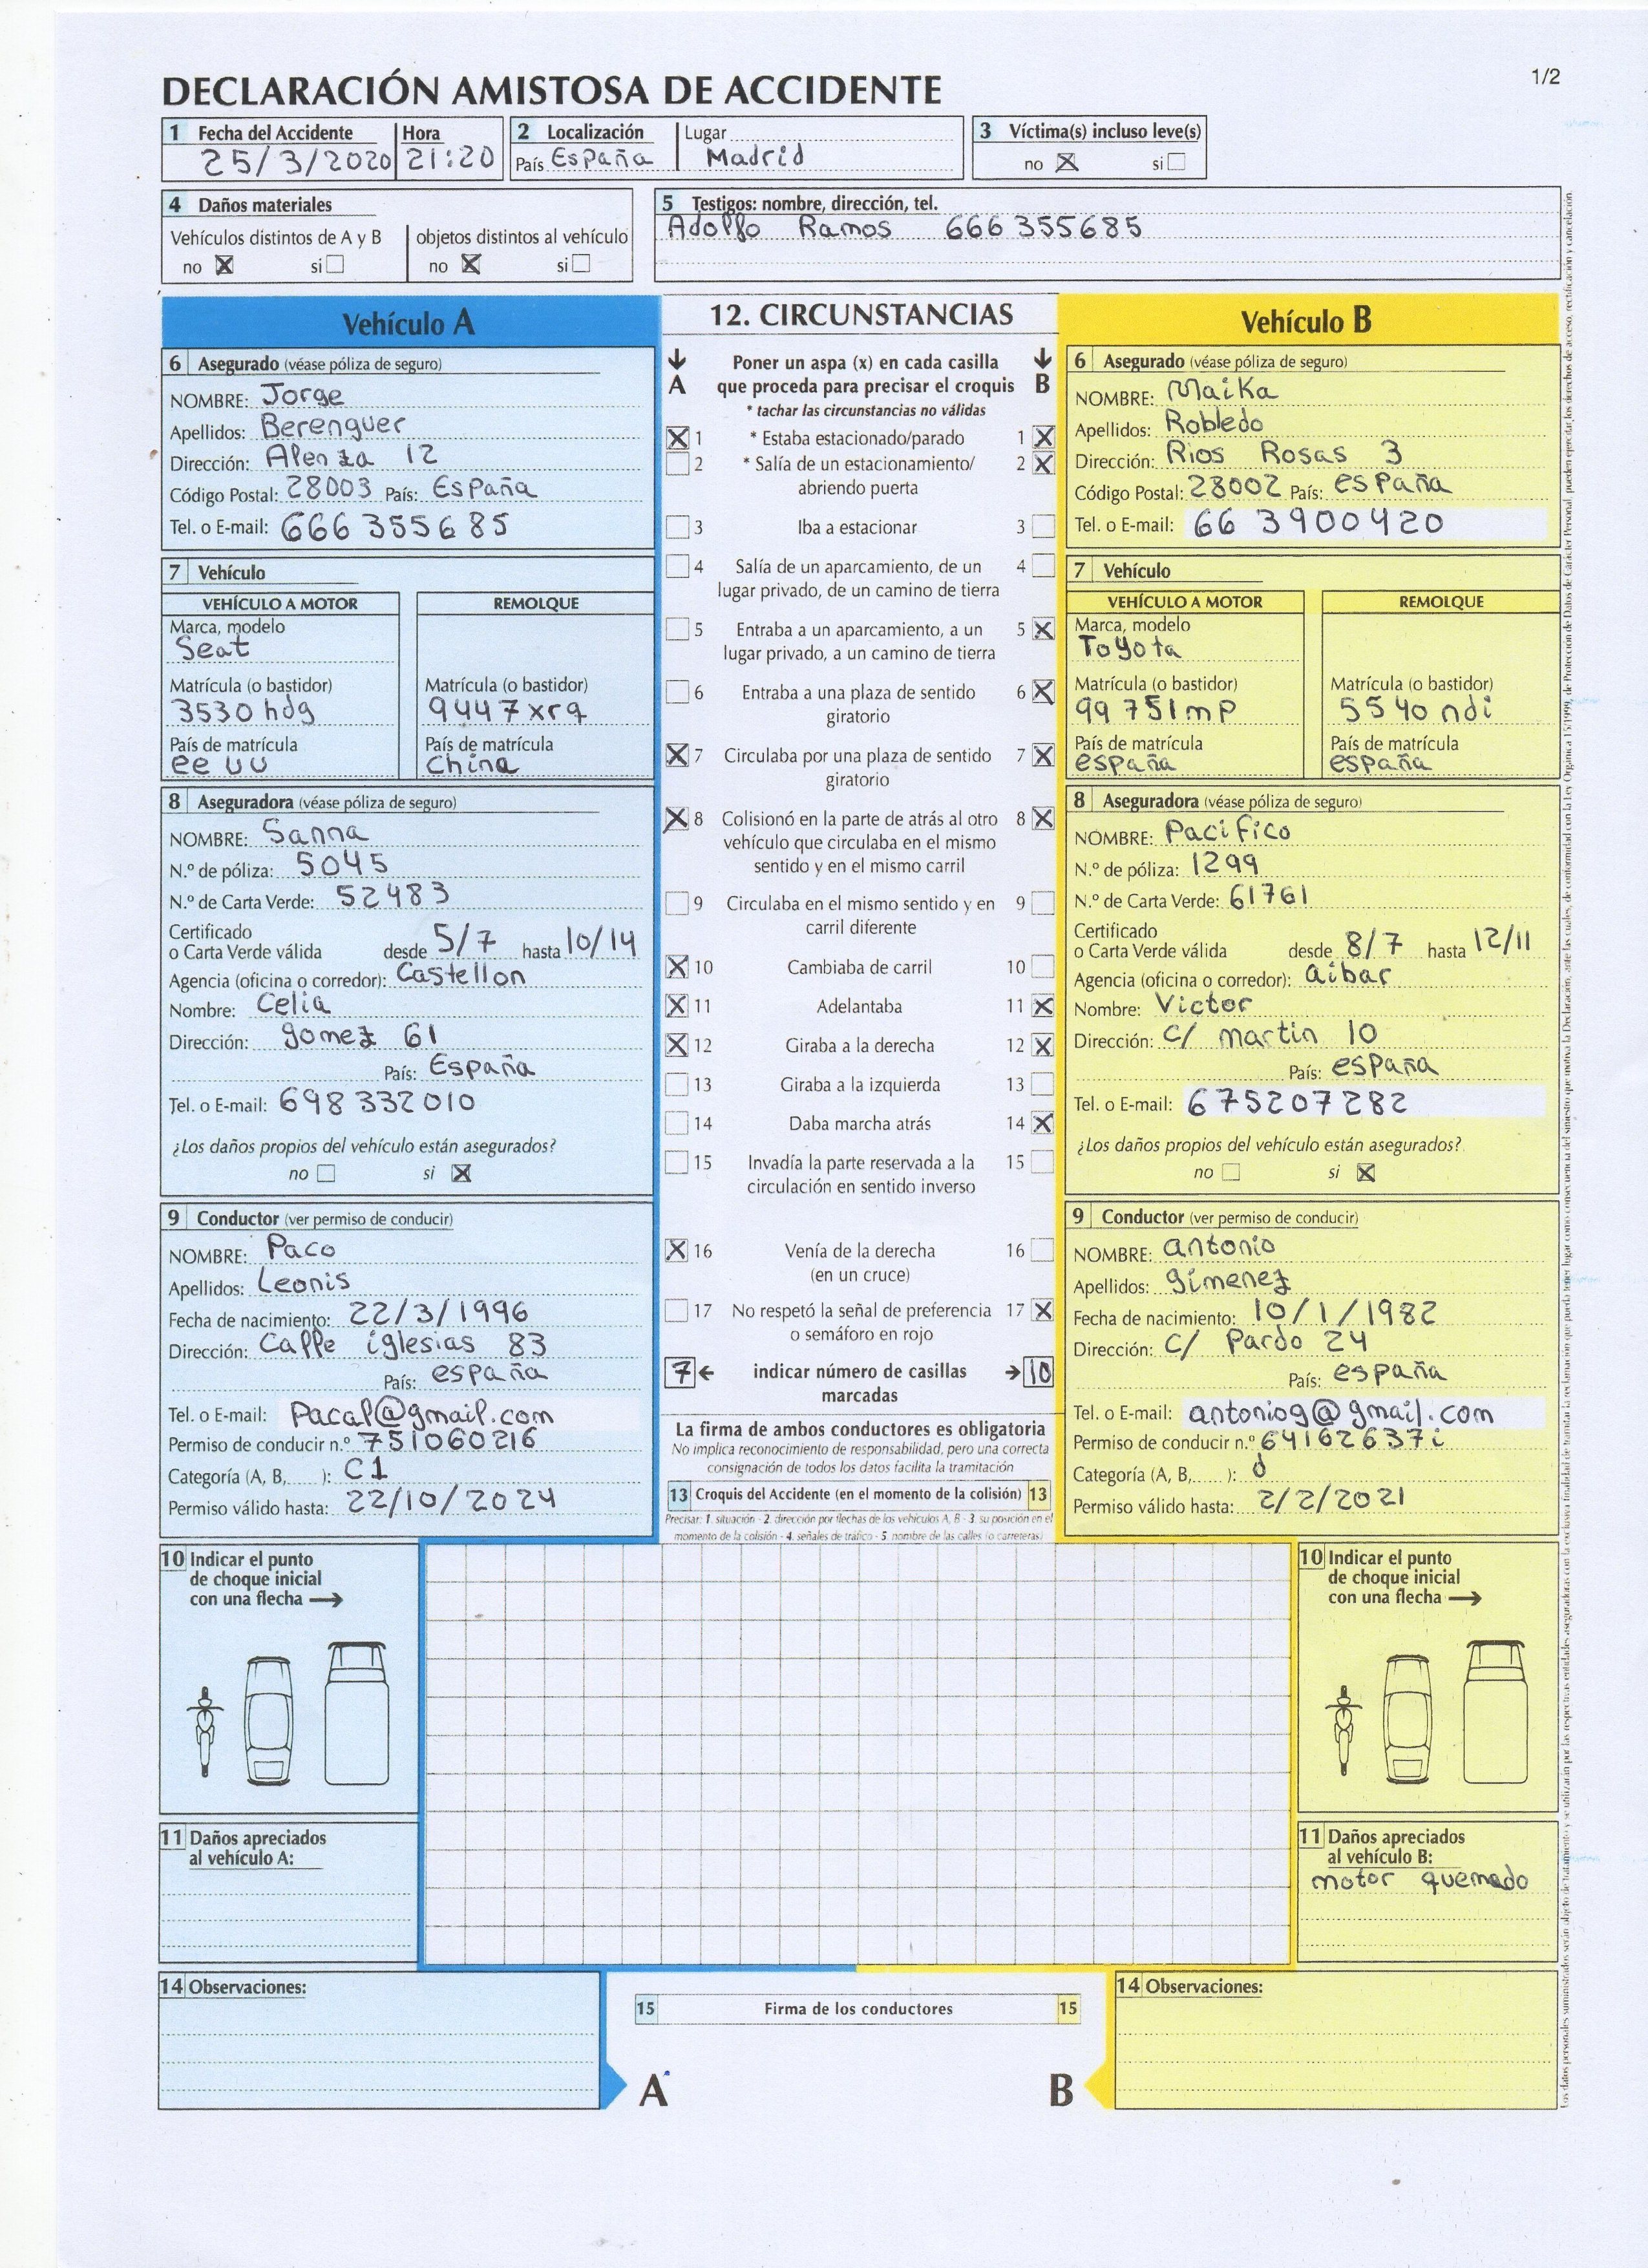 1/2
DECLARACIÓN AMISTOSA DE ACCIDENTE
1 Fecha del Accidente Hora
25/3/2020 21:20
2 Localización Lugar
País España Madrid
3 Víctima(s) incluso leve(s)
no X si
4 Daños materiales
Vehículos distintos de A y B objetos distintos al vehículo
no X si no X si
5 Testigos: nombre, dirección, tel.
Adolfo Ramos 666 355685
Vehículo A
6 Asegurado (véase póliza de seguro)
NOMBRE: Jorge
Apellidos: Berenguer
Dirección: Alenza 12
Código Postal: 28003 País: España
Tel. o E-mail: 666 355685
7 Vehículo
VEHÍCULO A MOTOR REMOLQUE
Marca, modelo
Seat
Matrícula (o bastidor) Matrícula (o bastidor)
3530 hdg 9447xrq
País de matrícula País de matrícula
ee uu china
8 Aseguradora (véase póliza de seguro)
NOMBRE: Sanna
N.º de póliza: 5045
N.º de Carta Verde: 52483
Certificado
o Carta Verde válida desde 5/7 hasta 10/14
Agencia (oficina o corredor): Castellon
Nombre: Celia
Dirección: gomez 61
País: España
Tel. o E-mail: 698 332010
¿Los daños propios del vehículo están asegurados?
no si X
9 Conductor (ver permiso de conducir)
NOMBRE: Paco
Apellidos: Leonis
Fecha de nacimiento: 22/3/1996
Dirección: Calle iglesias 83
País: españa
Tel. o E-mail: Pacal@gmail.com
Permiso de conducir n.º 751060216
Categoría (A, B, ): C1
Permiso válido hasta: 22/10/2024
12. CIRCUNSTANCIAS
A B
Poner un aspa (x) en cada casilla
que proceda para precisar el croquis
* tachar las circunstancias no válidas
X 1 * Estaba estacionado/parado 1 X
2 * Salía de un estacionamiento/ 2 X
abriendo puerta
3 Iba a estacionar 3
4 Salía de un aparcamiento, de un 4
lugar privado, de un camino de tierra
5 Entraba a un aparcamiento, a un 5 X
lugar privado, a un camino de tierra
6 Entraba a una plaza de sentido 6 X
giratorio
X 7 Circulaba por una plaza de sentido 7 X
giratorio
X 8 Colisionó en la parte de atrás al otro 8 X
vehículo que circulaba en el mismo
sentido y en el mismo carril
9 Circulaba en el mismo sentido y en 9
carril diferente
X 10 Cambiaba de carril 10
X 11 Adelantaba 11 X
X 12 Giraba a la derecha 12 X
13 Giraba a la izquierda 13
14 Daba marcha atrás 14 X
15 Invadía la parte reservada a la 15
circulación en sentido inverso
X 16 Venía de la derecha 16
(en un cruce)
17 No respetó la señal de preferencia 17 X
o semáforo en rojo
7 ← indicar número de casillas → 10
marcadas
La firma de ambos conductores es obligatoria
No implica reconocimiento de responsabilidad, pero una correcta
consignación de todos los datos facilita la tramitación
13 Croquis del Accidente (en el momento de la colisión) 13
Precisar: 1. situación - 2. dirección por flechas de los vehículos A, B - 3. su posición en el
momento de la colisión - 4. señales de tráfico - 5. nombre de las calles (o carreteras)
Vehículo B
6 Asegurado (véase póliza de seguro)
NOMBRE: Maika
Apellidos: Robledo
Dirección: Rios Rosas 3
Código Postal: 28002 País: españa
Tel. o E-mail: 66 3900420
7 Vehículo
VEHÍCULO A MOTOR REMOLQUE
Marca, modelo
Toyota
Matrícula (o bastidor) Matrícula (o bastidor)
99751mp 5540 ndi
País de matrícula País de matrícula
españa españa
8 Aseguradora (véase póliza de seguro)
NOMBRE: Pacifico
N.º de póliza: 1299
N.º de Carta Verde: 61761
Certificado
o Carta Verde válida desde 8/7 hasta 12/11
Agencia (oficina o corredor): aibar
Nombre: Victor
Dirección: C/ martin 10
País: españa
Tel. o E-mail: 675207282
¿Los daños propios del vehículo están asegurados?
no si X
9 Conductor (ver permiso de conducir)
NOMBRE: antonio
Apellidos: gimenez
Fecha de nacimiento: 10/1/1982
Dirección: C/ Pardo 24
País: españa
Tel. o E-mail: antoniog@gmail.com
Permiso de conducir n.º 64162637i
Categoría (A, B, ):
Permiso válido hasta: 2/2/2021
10 Indicar el punto
de choque inicial
con una flecha →
11 Daños apreciados
al vehículo A:
10 Indicar el punto
de choque inicial
con una flecha →
11 Daños apreciados
al vehículo B:
motor quemado
14 Observaciones:
15 Firma de los conductores 15
A B
14 Observaciones: